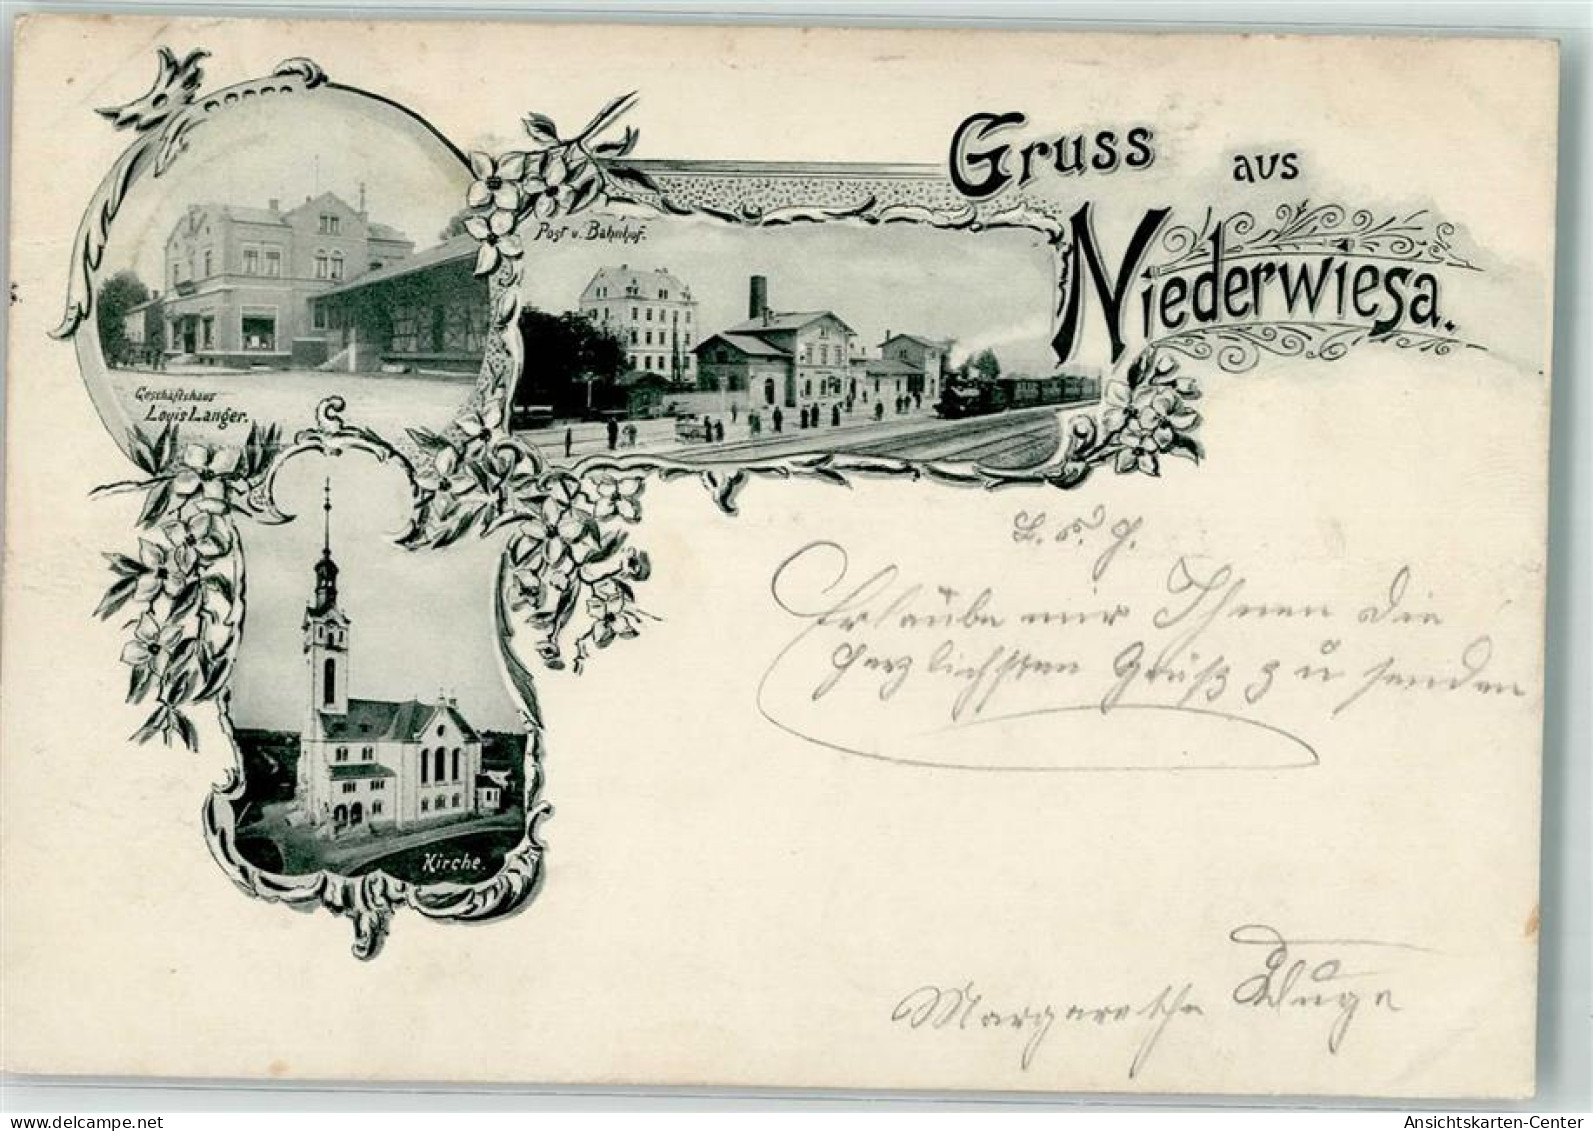 Gruss aus
Niederwiesa.
Post u. Bahnhof.
Geschäftshaus
Louis Langer.
Kirche.
Erlaube mir Ihnen die
herzlichsten Grüße zu senden
Margarethe
delcampe.net
Ansichtskarten-Center